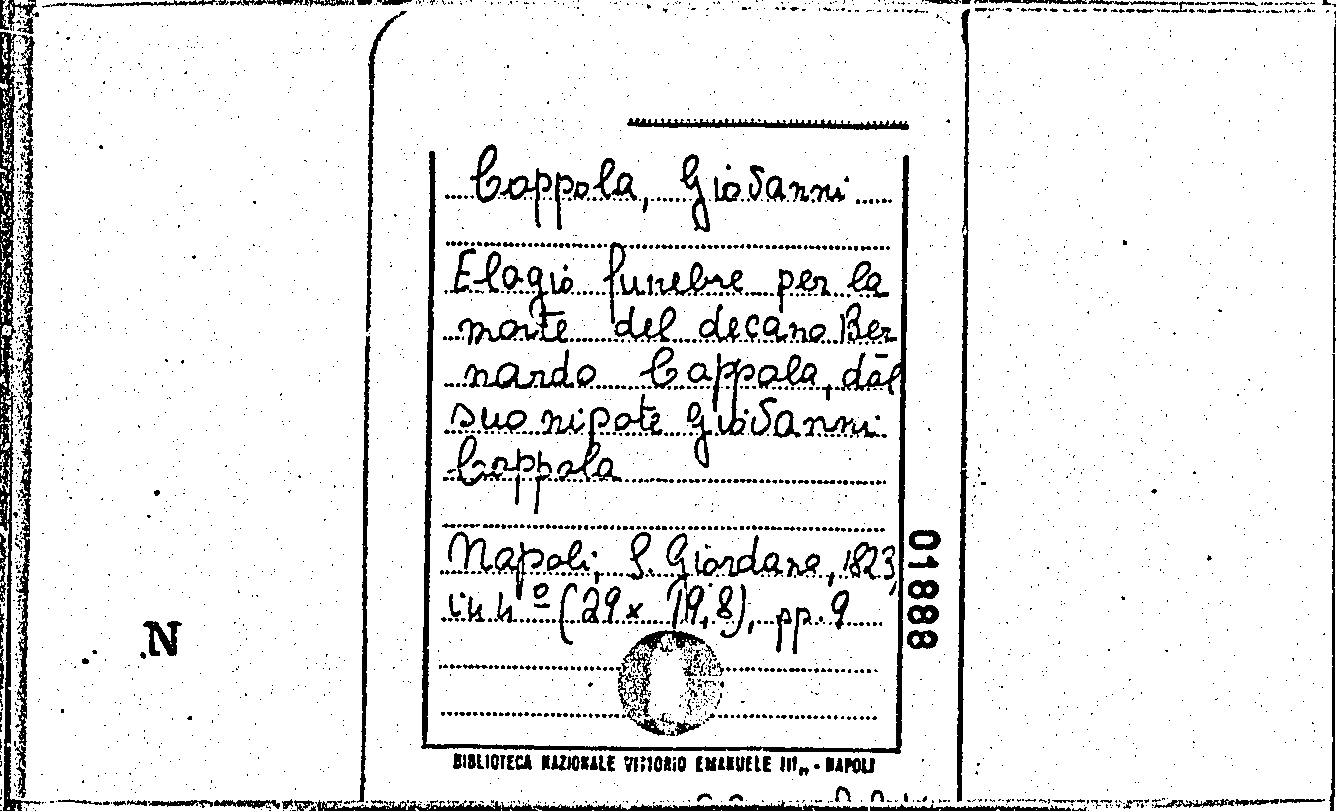 Coppola, Giovanni
Elogio funebre per la
morte del decano Ber
nardo Coppola, dal
suo nipote Giovanni
Coppola
Napoli, S. Giordano, 1823,
in 4º (29 x 19,8), pp. 9
01888
N
BIBLIOTECA NAZIONALE VITTORIO EMANUELE III„ - NAPOLI